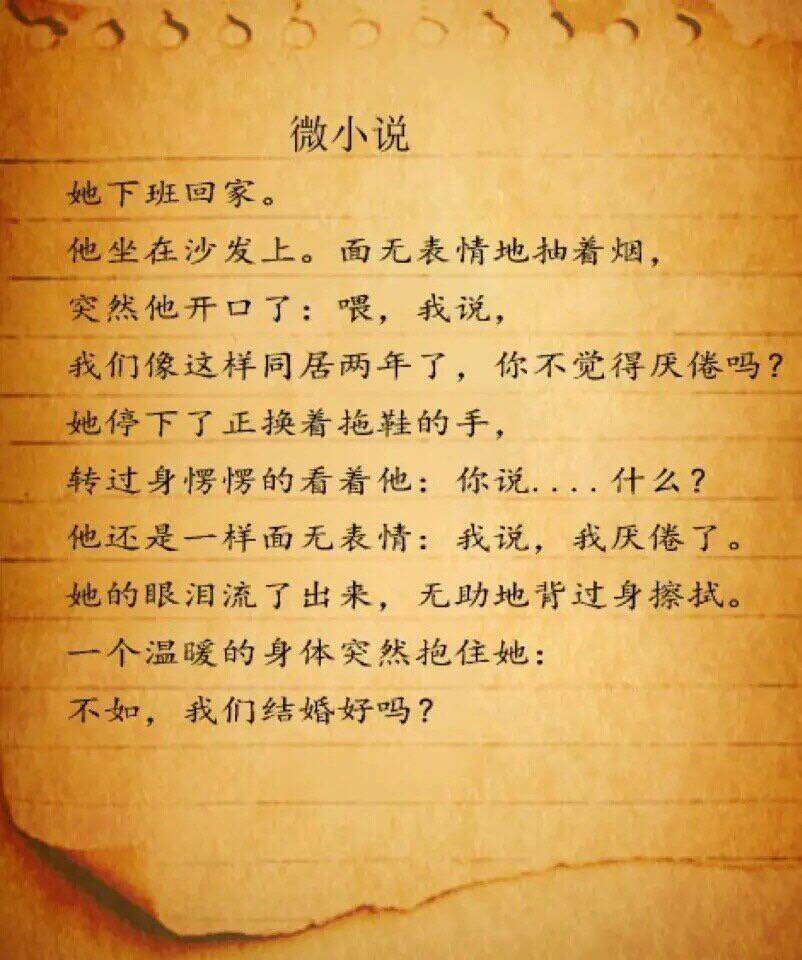 微小说
她下班回家。
他坐在沙发上。面无表情地抽着烟，
突然他开口了：喂，我说，
我们像这样同居两年了，你不觉得厌倦吗？
她停下了正换着拖鞋的手，
转过身愣愣的看着他：你说....什么？
他还是一样面无表情：我说，我厌倦了。
她的眼泪流了出来，无助地背过身擦拭。
一个温暖的身体突然抱住她：
不如，我们结婚好吗？